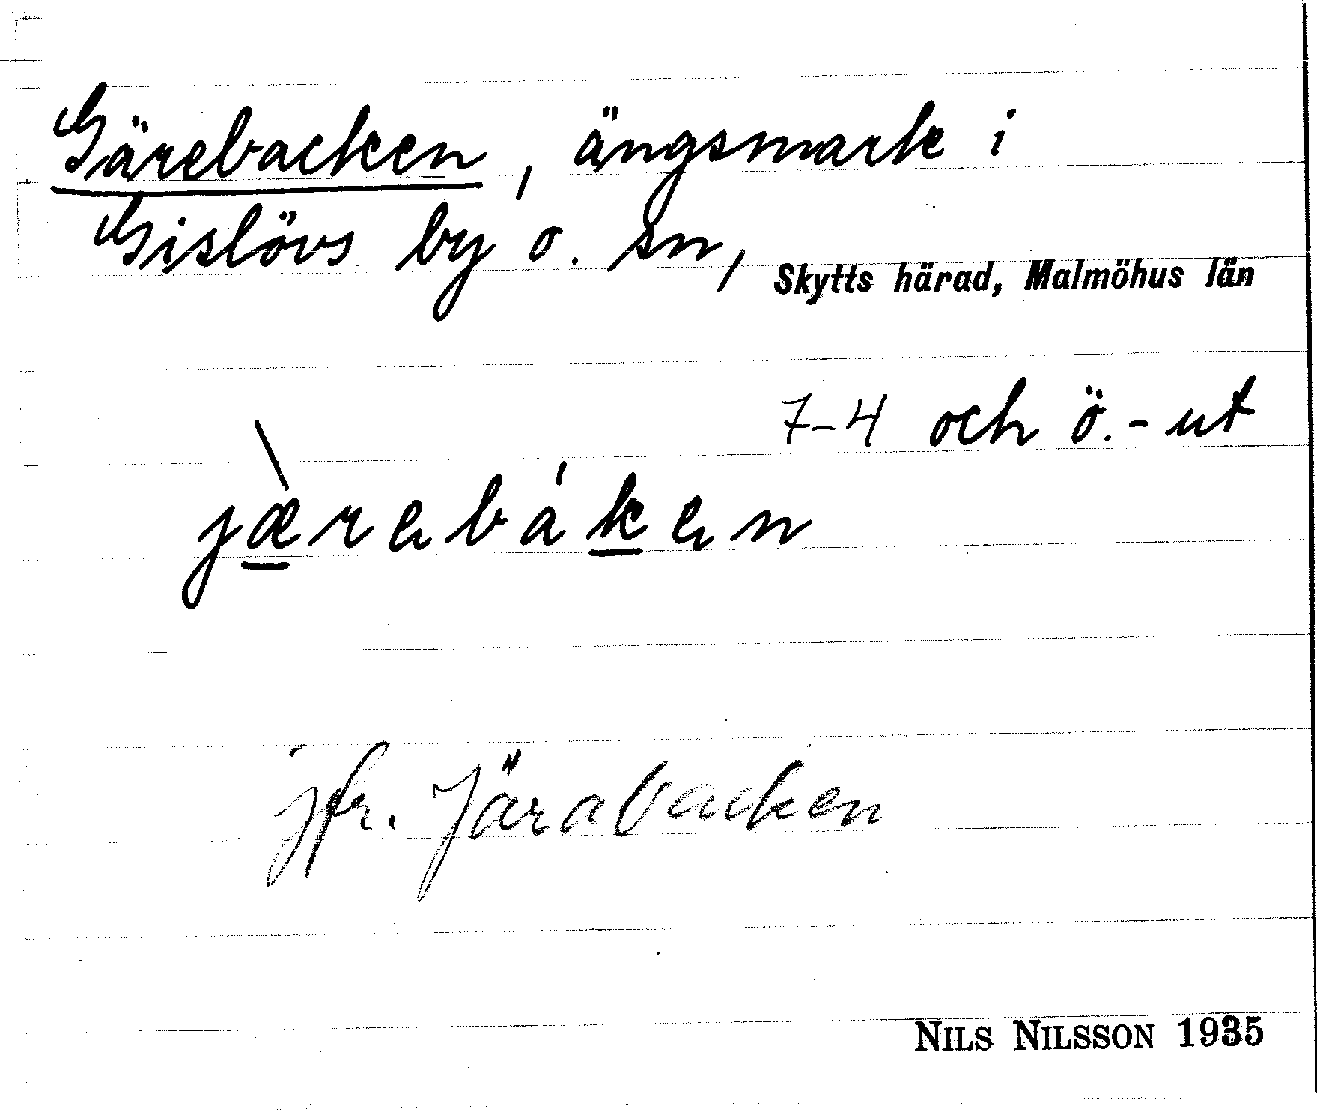 Gärebacken, ängsmark i
Gislövs by o. sn, Skytts härad, Malmöhus län
7-4 och ö.-ut
jæ̀rebáken
jfr. Järabacken
NILS NILSSON 1935